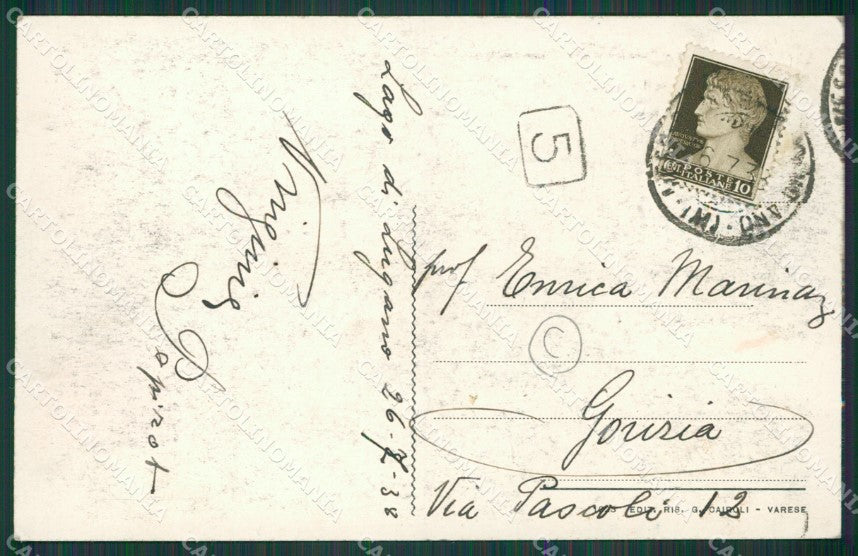 Lago di Lugano 26-7-38
Virginia
prof Enrica Marinaz
Gorizia
Via Pascoli 12
5
C
POSTE
ITALIANE 10
EDIZ. RIS. G. CAIROLI - VARESE
CARTOLINOMANIA